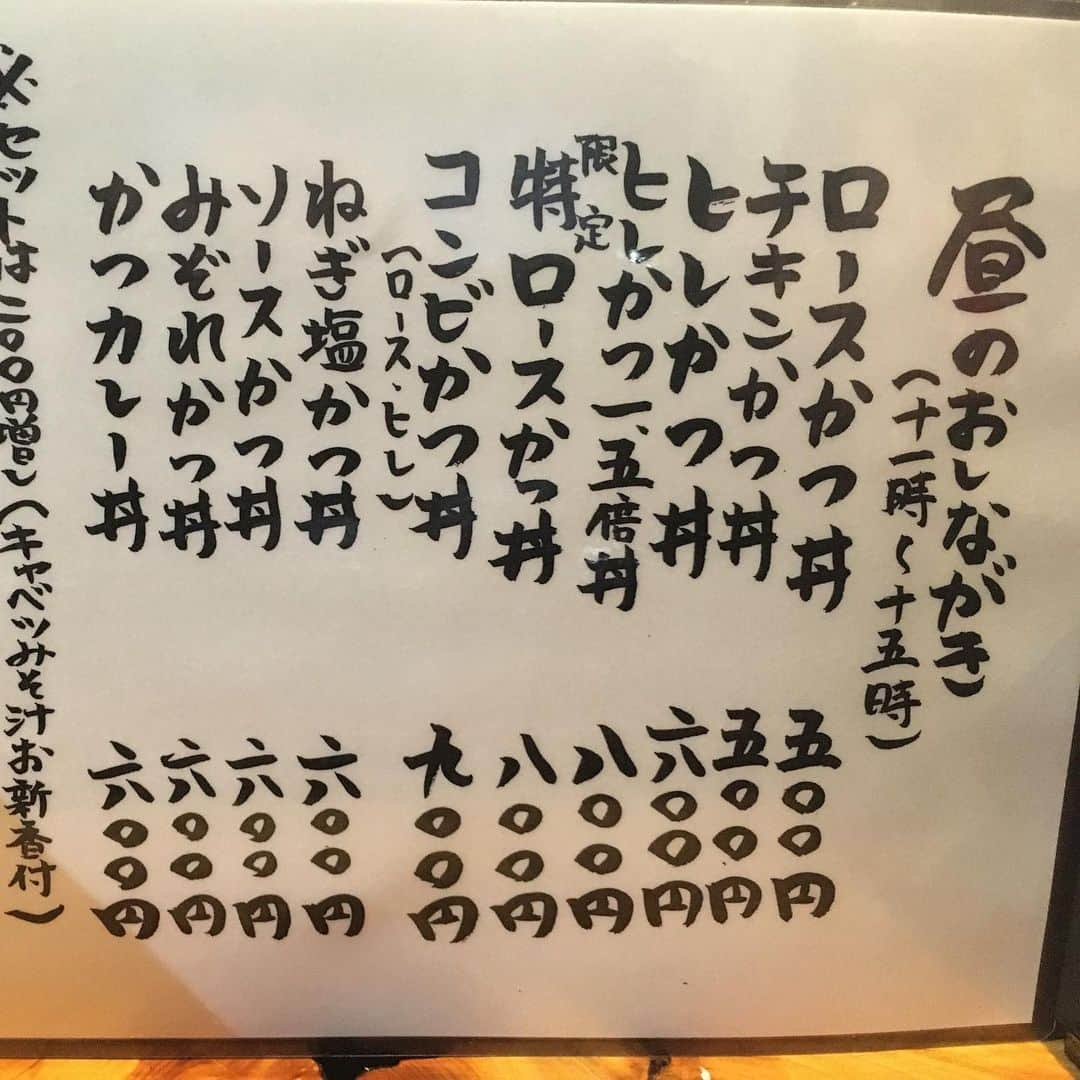 昼のおしながき
(十一時~十五時)
ロースかつ丼 五〇〇円
チキンかつ丼 五〇〇円
ヒレかつ丼 六〇〇円
ヒレかつ一、五倍丼 八〇〇円
限定
特ロースかつ丼 八〇〇円
コンビかつ丼 九〇〇円
(ロース・ヒレ)
ねぎ塩かつ丼 六〇〇円
ソースかつ丼 六〇〇円
みぞれかつ丼 六〇〇円
かつカレー丼 六〇〇円
※セットは二〇〇円増し(キャベツみそ汁お新香付)